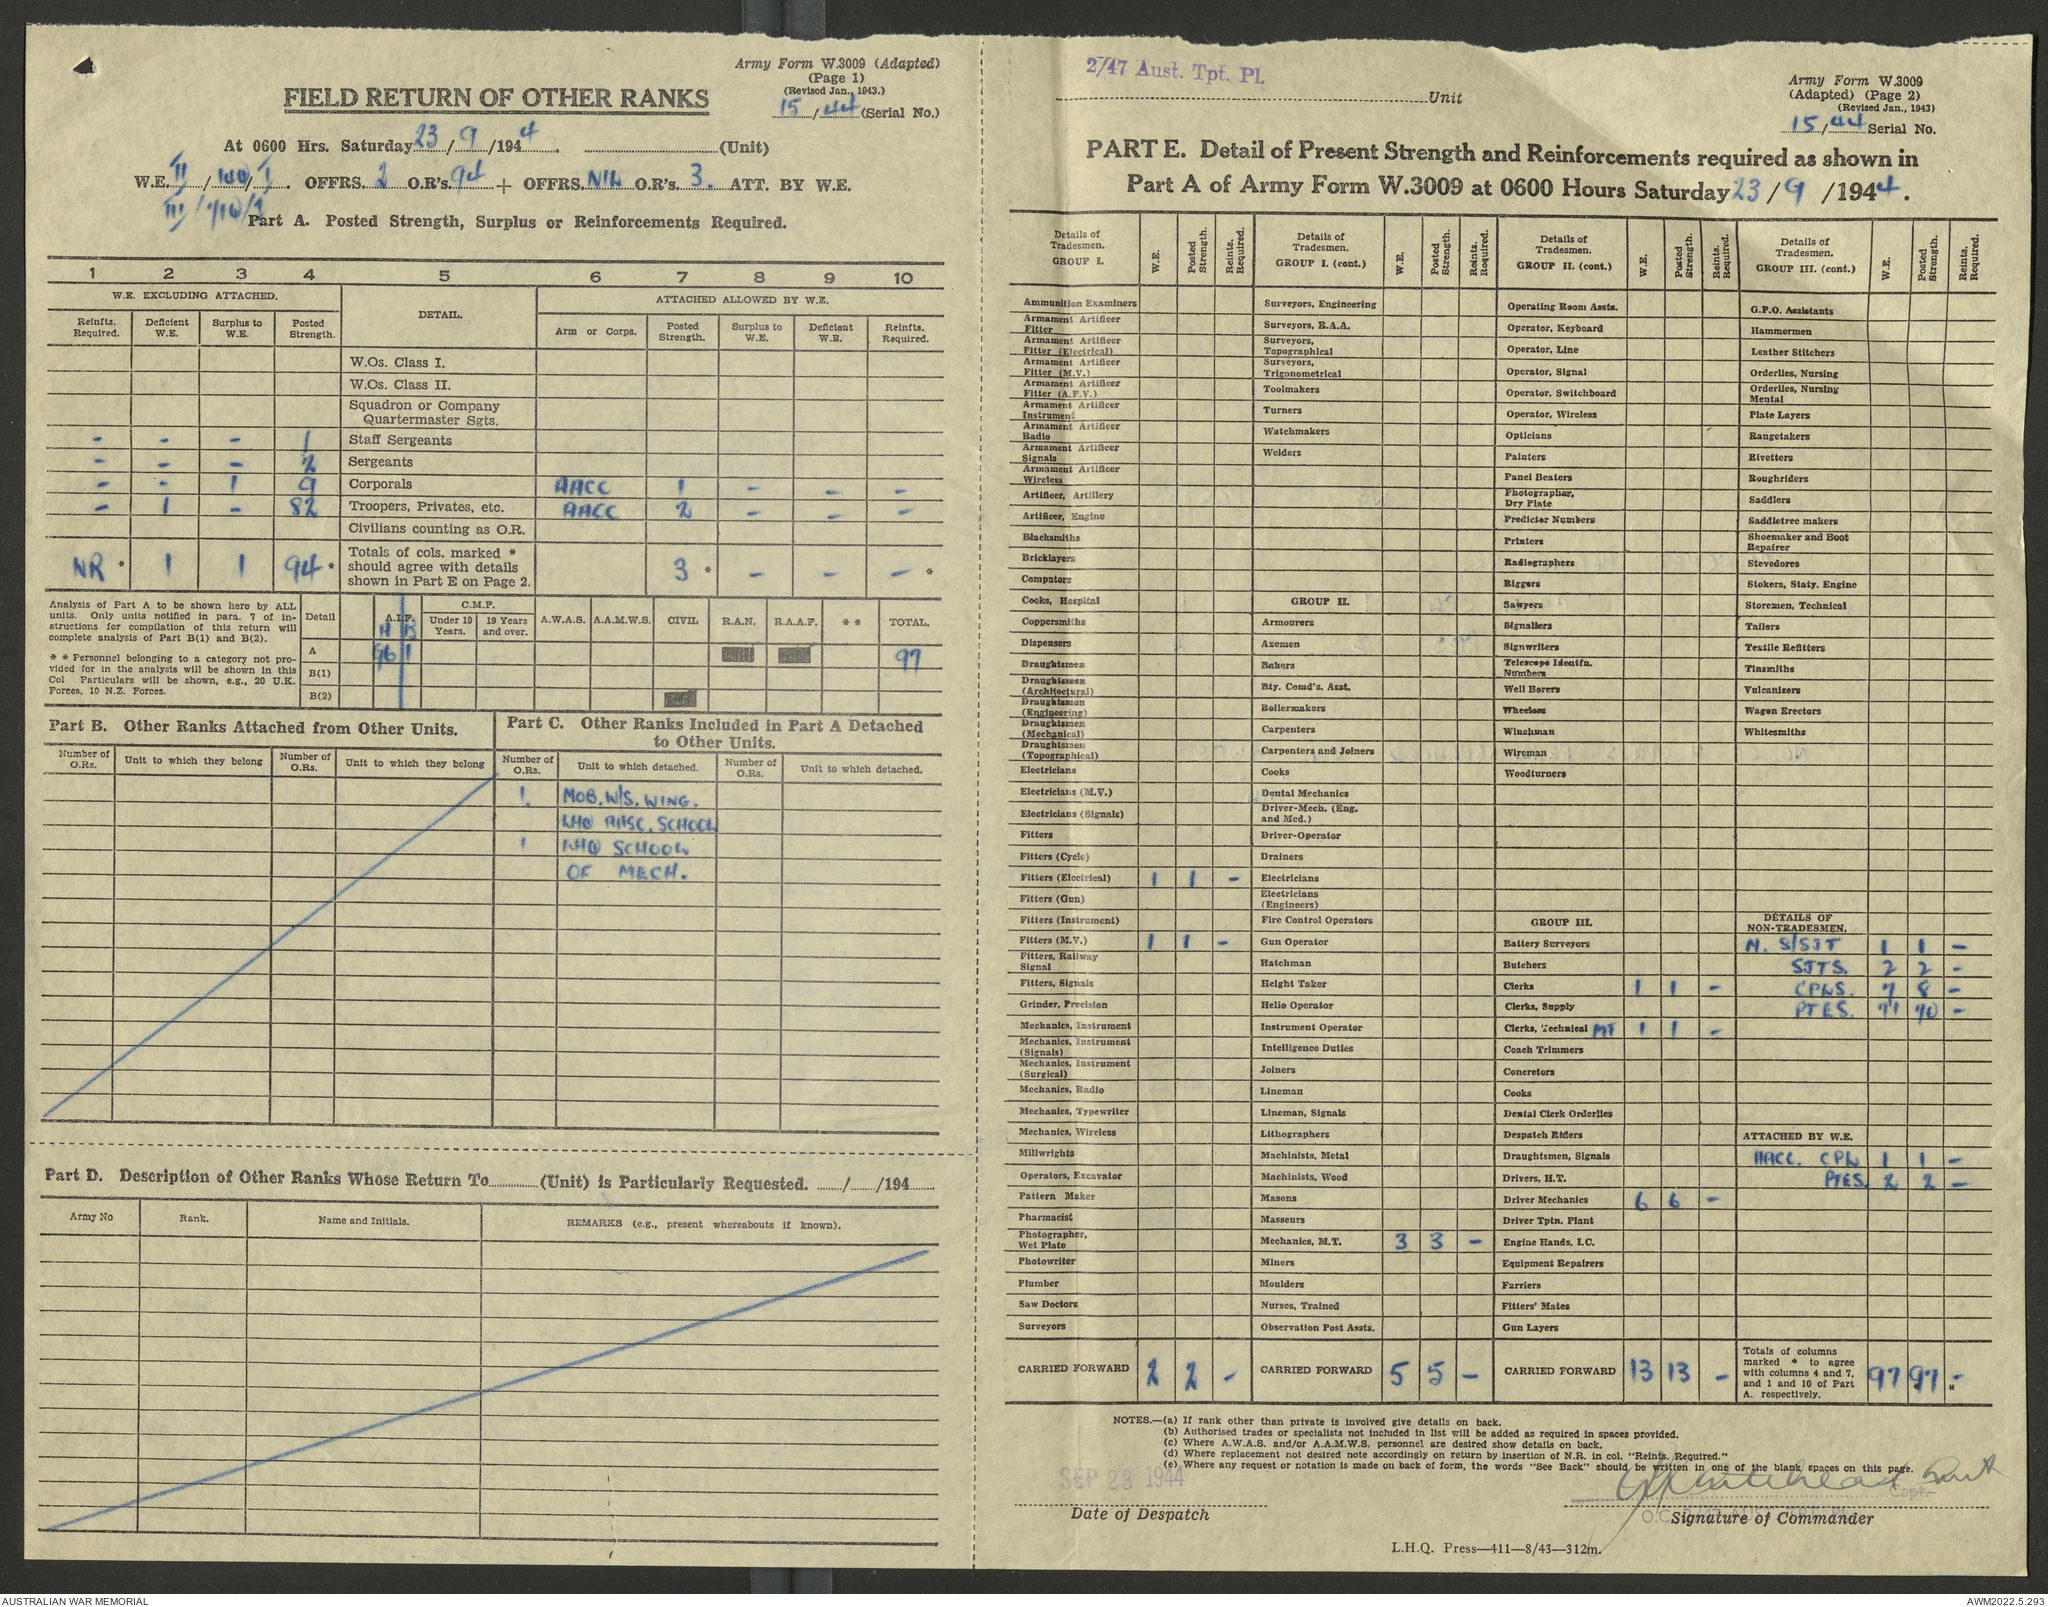 Army Form W.3009 (Adapted)
(Page 1)
(Revised Jan., 1943.)
15/44 (Serial No.)
FIELD RETURN OF OTHER RANKS
At 0600 Hrs. Saturday 23/9/1944. (Unit)
W.E. II/100/I. OFFRS. 2 O.R's. 94 + OFFRS. NIL O.R's. 3. ATT. BY W.E.
III/710/1
Part A. Posted Strength, Surplus or Reinforcements Required.
1 2 3 4 5 6 7 8 9 10
W.E. EXCLUDING ATTACHED. DETAIL. ATTACHED ALLOWED BY W.E.
Reinfts. Required. Deficient W.E. Surplus to W.E. Posted Strength. Arm or Corps. Posted Strength. Surplus to W.E. Deficient W.E. Reinfts. Required.
W.Os. Class I.
W.Os. Class II.
Squadron or Company
Quartermaster Sgts.
- - - 1 Staff Sergeants
- - - 2 Sergeants
- - 1 9 Corporals AACC 1 - - -
- 1 - 82 Troopers, Privates, etc. AACC 2 - - -
Civilians counting as O.R.
NR * 1 1 94 * Totals of cols. marked * should agree with details shown in Part E on Page 2. 3 * - - - *
Analysis of Part A to be shown here by ALL
units. Only units notified in para. 7 of in-
structions for compilation of this return will
complete analysis of Part B(1) and B(2).
* * Personnel belonging to a category not pro-
vided for in the analysis will be shown in this
Col Particulars will be shown, e.g., 20 U.K.
Forces, 10 N.Z. Forces.
Detail A.I.F. C.M.F. Under 19 Years. 19 Years and over. A.W.A.S. A.A.M.W.S. CIVIL R.A.N. R.A.A.F. * * TOTAL.
A B
A 96 1 97
B(1)
B(2)
Part B. Other Ranks Attached from Other Units.
Number of O.Rs. Unit to which they belong Number of O.Rs. Unit to which they belong
Part C. Other Ranks Included in Part A Detached
to Other Units.
Number of O.Rs. Unit to which detached. Number of O.Rs. Unit to which detached.
1 MOB. W/S. WING.
LHQ AASC. SCHOOL
1 LHQ SCHOOL
OF MECH.
Part D. Description of Other Ranks Whose Return To (Unit) is Particularly Requested. / /194
Army No Rank. Name and Initials. REMARKS (e.g., present whereabouts if known).
2/47 Aust. Tpt. Pl.
Unit
Army Form W.3009
(Adapted) (Page 2)
(Revised Jan., 1943)
15/44 Serial No.
PART E. Detail of Present Strength and Reinforcements required as shown in
Part A of Army Form W.3009 at 0600 Hours Saturday 23/9/1944.
Details of Tradesmen. GROUP I. W.E. Posted Strength. Reints. Required.
Ammunition Examiners
Armament Artificer Fitter
Armament Artificer Fitter (Electrical)
Armament Artificer Fitter (M.V.)
Armament Artificer Fitter (A.F.V.)
Armament Artificer Instrument
Armament Artificer Radio
Armament Artificer Signals
Armament Artificer Wireless
Artificer, Artillery
Artificer, Engine
Blacksmiths
Bricklayers
Computors
Cooks, Hospital
Coppersmiths
Dispensers
Draughtsmen
Draughtsmen (Architectural)
Draughtsmen (Engineering)
Draughtsmen (Mechanical)
Draughtsmen (Topographical)
Electricians
Electricians (M.V.)
Electricians (Signals)
Fitters
Fitters (Cycle)
Fitters (Electrical) 1 1 -
Fitters (Gun)
Fitters (Instrument)
Fitters (M.V.) 1 1 -
Fitters, Railway Signal
Fitters, Signals
Grinder, Precision
Mechanics, Instrument
Mechanics, Instrument (Signals)
Mechanics, Instrument (Surgical)
Mechanics, Radio
Mechanics, Typewriter
Mechanics, Wireless
Millwrights
Operators, Excavator
Pattern Maker
Pharmacist
Photographer, Wet Plate
Photowriter
Plumber
Saw Doctors
Surveyors
CARRIED FORWARD 2 2 -
Details of Tradesmen. GROUP I. (cont.) W.E. Posted Strength. Reints. Required.
Surveyors, Engineering
Surveyors, R.A.A.
Surveyors, Topographical
Surveyors, Trigonometrical
Toolmakers
Turners
Watchmakers
Welders
GROUP II.
Armourers
Axemen
Bakers
Bty. Comd's. Asst.
Boilermakers
Carpenters
Carpenters and Joiners
Cooks
Dental Mechanics
Driver-Mech. (Eng. and Med.)
Driver-Operator
Drainers
Electricians
Electricians (Engineers)
Fire Control Operators
Gun Operator
Hatchman
Height Taker
Helio Operator
Instrument Operator
Intelligence Duties
Joiners
Lineman
Lineman, Signals
Lithographers
Machinists, Metal
Machinists, Wood
Masons
Masseurs
Mechanics, M.T. 3 3 -
Miners
Moulders
Nurses, Trained
Observation Post Assts.
CARRIED FORWARD 5 5 -
Details of Tradesmen. GROUP II. (cont.) W.E. Posted Strength. Reints. Required.
Operating Room Assts.
Operator, Keyboard
Operator, Line
Operator, Signal
Operator, Switchboard
Operator, Wireless
Opticians
Painters
Panel Beaters
Photographer, Dry Plate
Predictor Numbers
Printers
Radiographers
Riggers
Sawyers
Signallers
Signwriters
Telescope Identfn. Numbers
Well Borers
Wheelers
Winchman
Wireman
Woodturners
GROUP III.
Battery Surveyors
Butchers
Clerks 1 1 -
Clerks, Supply
Clerks, Technical MT 1 1 -
Coach Trimmers
Concretors
Cooks
Dental Clerk Orderlies
Despatch Riders
Draughtsmen, Signals
Drivers, H.T.
Driver Mechanics 6 6 -
Driver Tptn. Plant
Engine Hands, I.C.
Equipment Repairers
Farriers
Fitters' Mates
Gun Layers
CARRIED FORWARD 13 13 -
Details of Tradesmen. GROUP III. (cont.) W.E. Posted Strength. Reints. Required.
G.P.O. Assistants
Hammermen
Leather Stitchers
Orderlies, Nursing
Orderlies, Nursing Mental
Plate Layers
Rangetakers
Rivetters
Roughriders
Saddlers
Saddletree makers
Shoemaker and Boot Repairer
Stevedores
Stokers, Staty. Engine
Storemen, Technical
Tailors
Textile Refitters
Tinsmiths
Vulcanizers
Wagon Erectors
Whitesmiths
DETAILS OF NON-TRADESMEN.
M. S/SJT 1 1 -
SJTS. 2 2 -
CPLS. 7 8 -
PTES. 71 70 -
ATTACHED BY W.E.
AACC. CPL 1 1 -
PTES. 2 2 -
Totals of columns marked * to agree with columns 4 and 7, and 1 and 10 of Part A. respectively. 97 97 * - *
NOTES.—(a) If rank other than private is involved give details on back.
(b) Authorised trades or specialists not included in list will be added as required in spaces provided.
(c) Where A.W.A.S. and/or A.A.M.W.S. personnel are desired show details on back.
(d) Where replacement not desired note accordingly on return by insertion of N.R. in col. "Reints. Required."
(e) Where any request or notation is made on back of form, the words "See Back" should be written in one of the blank spaces on this page.
SEP 23 1944
Date of Despatch
Capt.
Signature of Commander
L.H.Q. Press—411—8/43—312m.
AUSTRALIAN WAR MEMORIAL
AWM2022.5.293